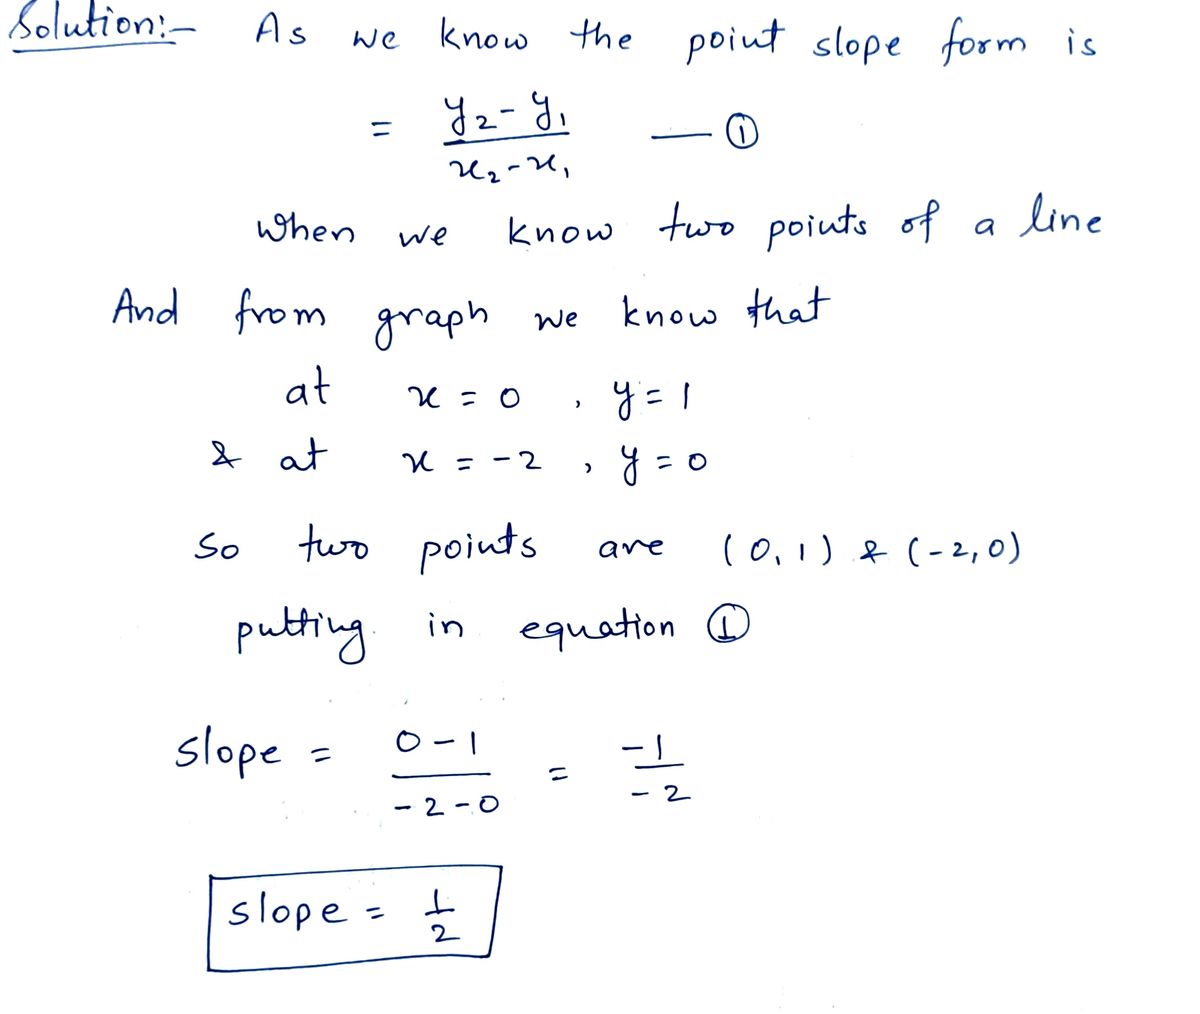 Solution:- As we know the point slope form is
= y₂-y₁ / x₂-x₁ — ①
when we know two points of a line
And from graph we know that
at x = 0 , y = 1
& at x = -2 , y = 0
So two points are (0, 1) & (-2, 0)
putting in equation ①
slope = 0-1 / -2-0 = -1 / -2
slope = 1/2